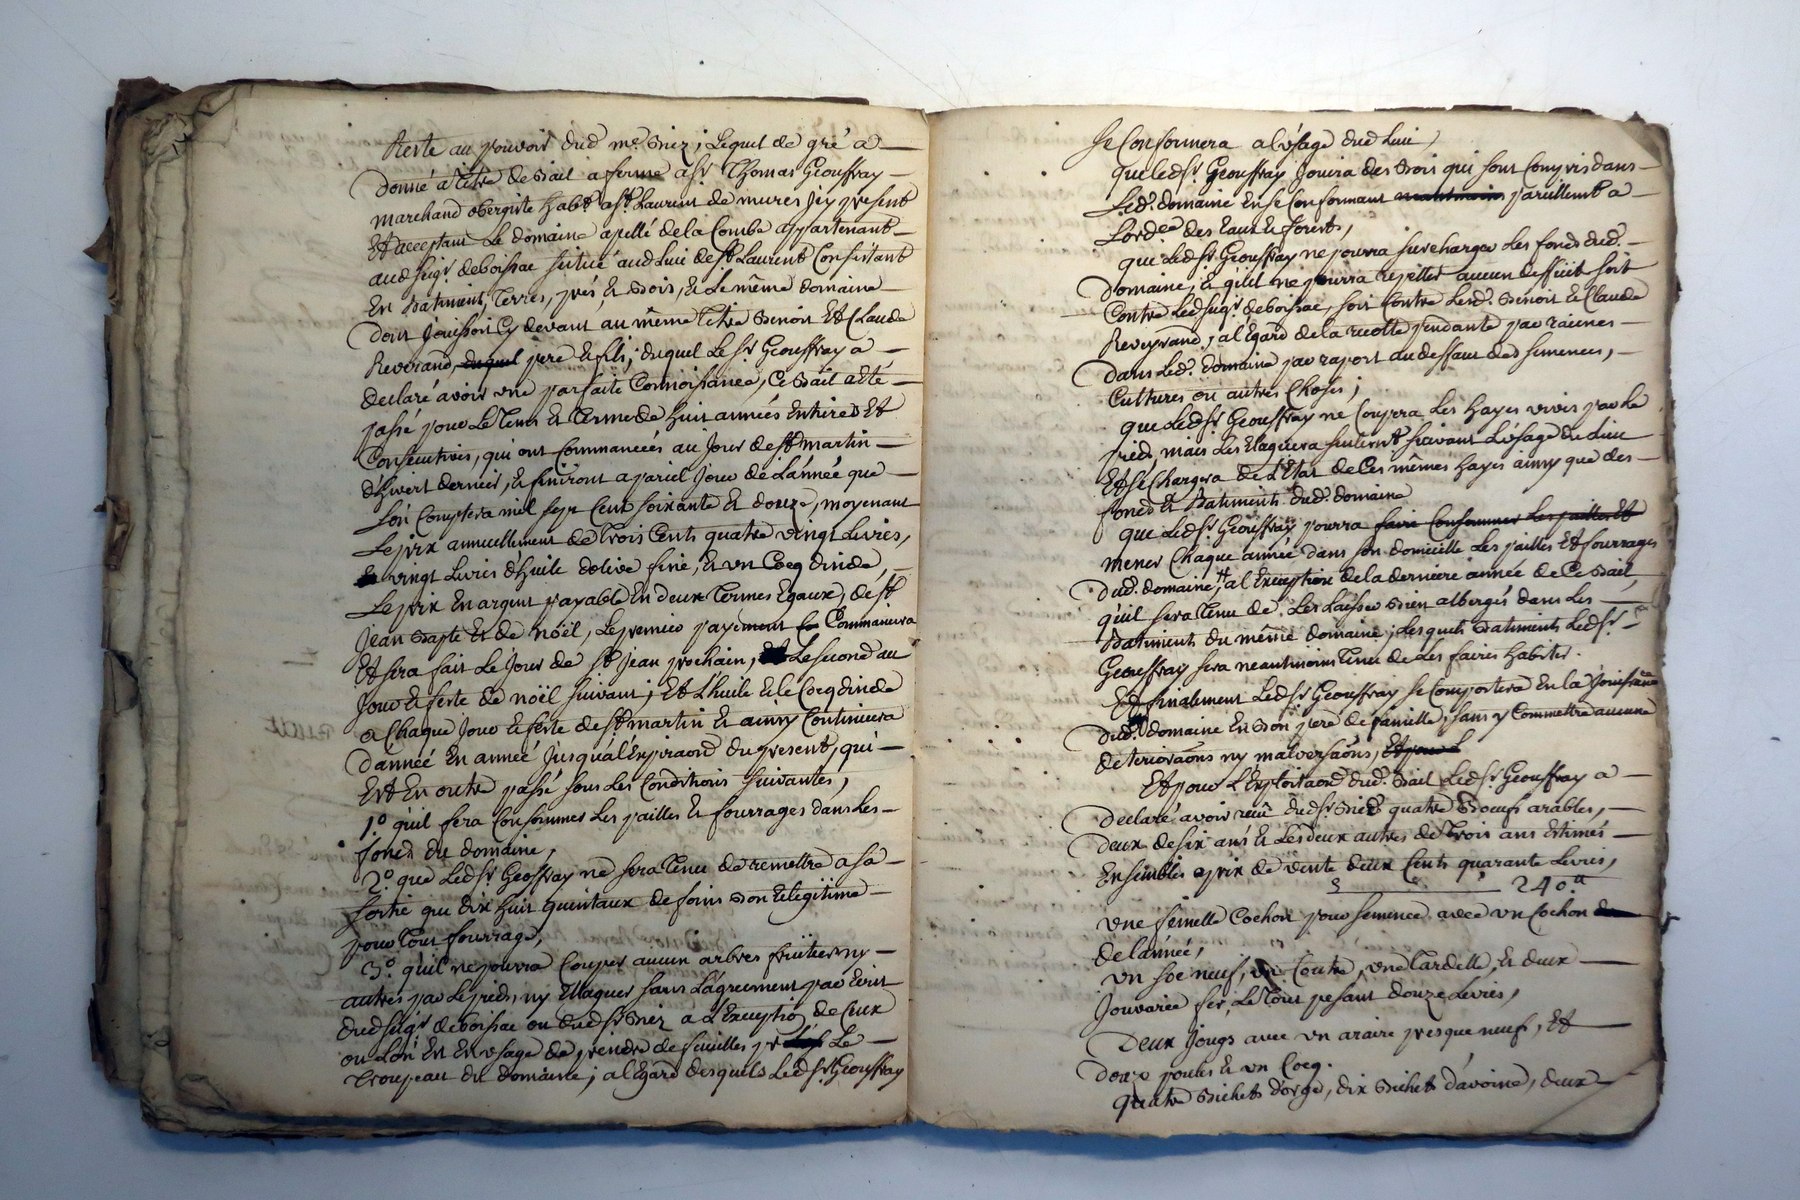 Reste au pouvoir dud me Biez ; Lequel de gré a
donné a titre de Bail a ferme a Sr Thomas Geouffray
marchand obergiste habt a St Laurent de mures jcy present
Et acceptant Le domaine apellé de la Combe appartenant
aud Seigr deboissac scitué aud Lieu de St Laurent Consistant
En Batiment, Terres, prés, & Bois, & Le même domaine
dont Jouissoit Cy devant au même Titre Benoit Et Claude
Reverand, pere & fils ; duquel Le Sr Geouffray a
declaré avoir une parfaite Connoissance, Ce Bail a eté
passé pour Le Tems & Terme de huit années Entieres Et
Consecutives, qui ont Commancées au Jour de St martin
d'hivert dernier, & finiront a pariel Jour de L'année que
L'on Comptera mil sept Cent soixante & douze, moyenant
Le prix annuellement de Trois Cents quatre vingt Livres,
vingt Livres d'huile dolive fine, & un Cocq dinde,
Le prix En argent payable En deux Termes Egaux, de St
Jean Bapte & de Noël, Le premier payement Commancera
Et sera fait Le Jour de St Jean prochain, Le second au
Jour & feste de noël suivant ; Et L'huile & le Cocq dinde
a Chaque Jour & feste de St martin & ainsy Continuera
dannée En année Jusqu'a L'expiraon du present, qui
Est En outre passé sous Les Conditions suivantes,
1.o quil fera Consommer Les pailles & fourrages dans Les
fonds du domaine,
2.o que Ledsr Geoffray ne sera Tenu de remettre a sa
sortie que dix huit quintaux de foins Bon & legitime
pour Tout fourrage,
3.o qu'il ne pourra Couper aucun arbres fruitiers ny
autres par Le pied, ny Ellaguer sans L'agrement par Ecrit
dud Seigr deboissac ou dud Sr Biez a L'Exception de Ceux
ou L'on En En usage de prendre de feuilles pr Le
troupeau du domaine ; a L'Egard desquels Ledsr Geouffray
Se Conformera a L'usage dud Lieu,
que Ledsr Geouffray Jouira des Bois qui sont Compris dans
Led. domaine En se Conformant pareillement a
Lordce des Eaux & forests,
que Ledsr Geouffray ne pourra surcharger Les fonds dud.
Domaine, & qu'il ne pourra repeter aucun deffiit soit
Contre Led seigr deboissac, soit Contre Lesd. Benoit & Claude
Reveyrand, a L'Egard de la recolte pendante par racines
dans Led. domaine par raport au deffaut des semences,
Cultures ou autres Choses ;
que Ledsr Geouffray ne Coupera Les hayes vives par Le
pied, mais Les Elaguera seulemt suivant L'usage du Lieu
Et se Chargera de L'Etat de Ces mêmes hayes ainsy que des
fonds & Batiments dud. domaine
que Ledsr Geouffray pourra faire Consommer Les pailles Et
mener Chaque année dans son domicille Les pailles Et fourrages
Dud. domaine, a L'Exception de la derniere année de Ce Bail,
qu'il sera Tenu de Les Laisser Bien albergés dans Les
Batiments du même domaine ; Lesquels Batiments Ledsr
Geouffray sera neantmoins Tenu de Les faires habiter.
Et finalement Ledsr Geouffray se Comportera En la Jouissance
Dud. domaine En Bon pere de famille, sans y Commettre aucune
deterioraons ny malversaons,
Et pour L'Exploitaon dud. Bail Ledsr Geouffray a
Declaré avoir reçû dudsr Biez quatre Boeufs arables,
deux de six ans & Les deux autres de Trois ans Estimés
Ensembles prix de vente deux Cents quarante Livres,
240.tt
une femelle Cochon pour semence avec un Cochon
de L'année,
un soc neuf, un Coutre, une Tardelle, & deux
Jouvarie fer, Le Tout pesant douze Livres,
Deux Jougs avec un araire presque neuf, Et
Douze poules & un Cocq.
quatre Bichets d'orge, dix Bichets d'avoine, deux